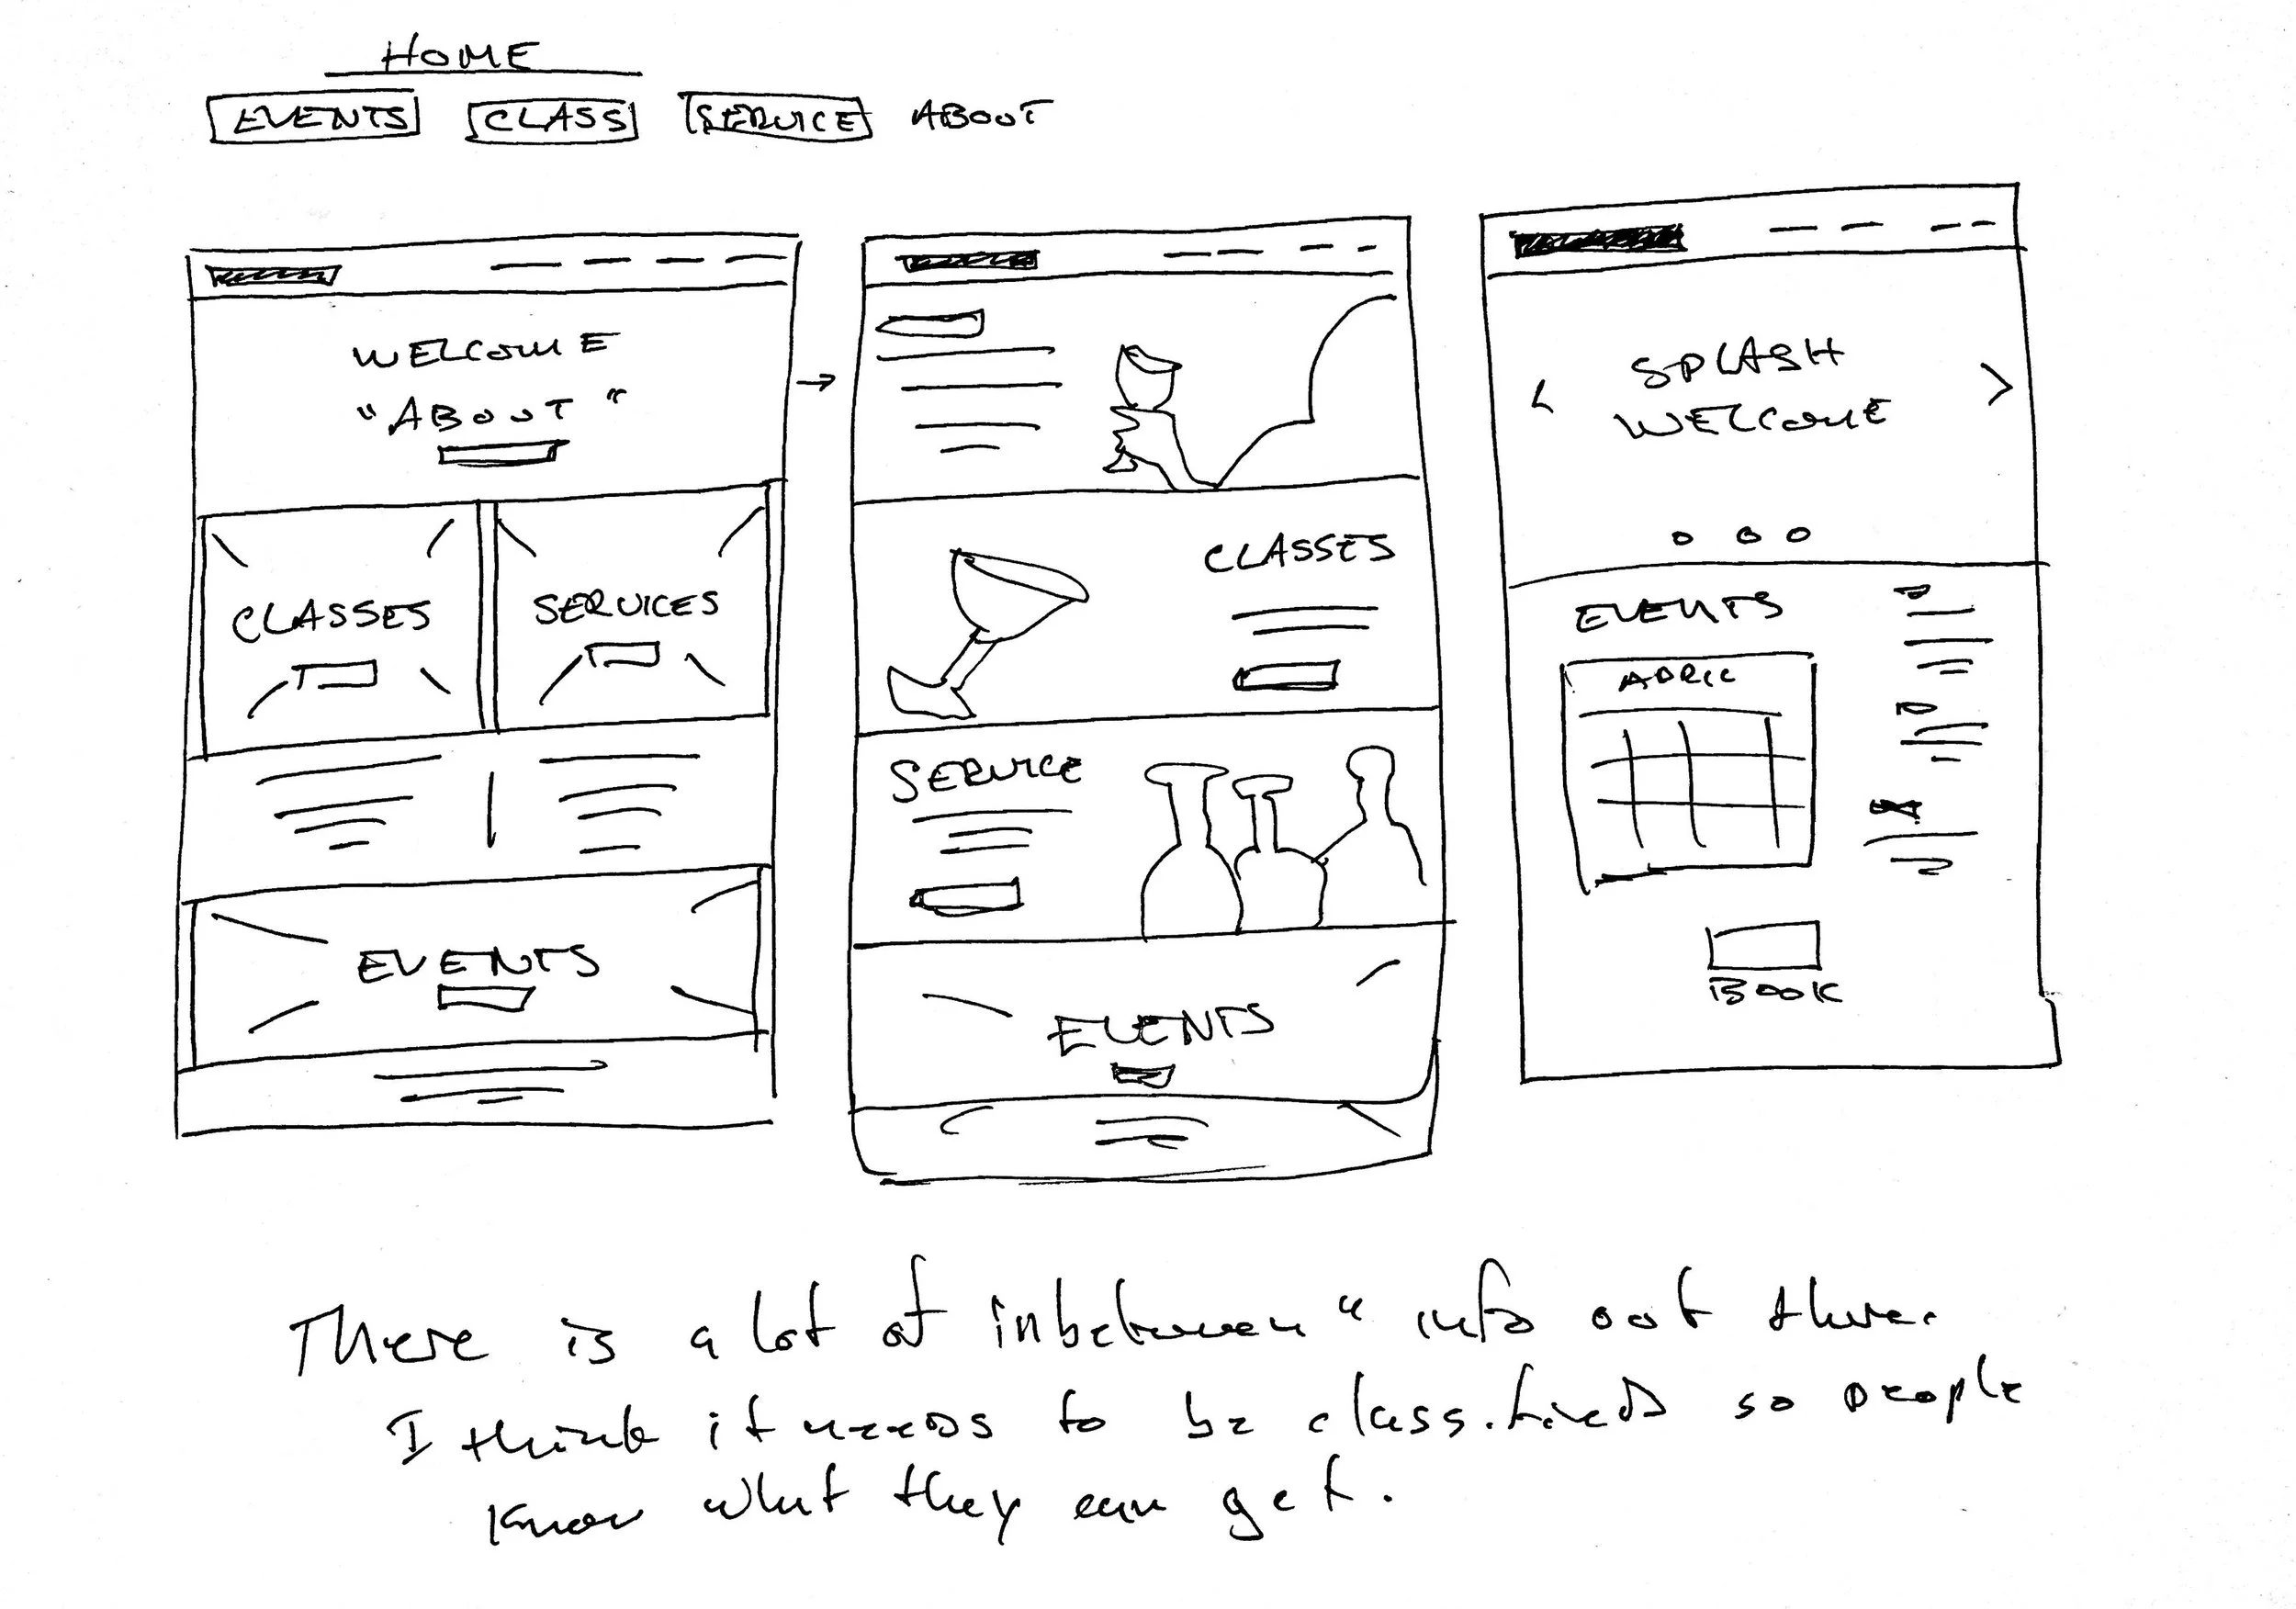 HOME
EVENTS CLASS SERVICE ABOUT
WELCOME
"ABOUT"
CLASSES
SERVICES
EVENTS
CLASSES
SERVICE
EVENTS
SPLASH
WELCOME
EVENTS
APRIL
BOOK
There is a lot of inbetween" info out there.
I think it needs to be classified so people
know what they can get.